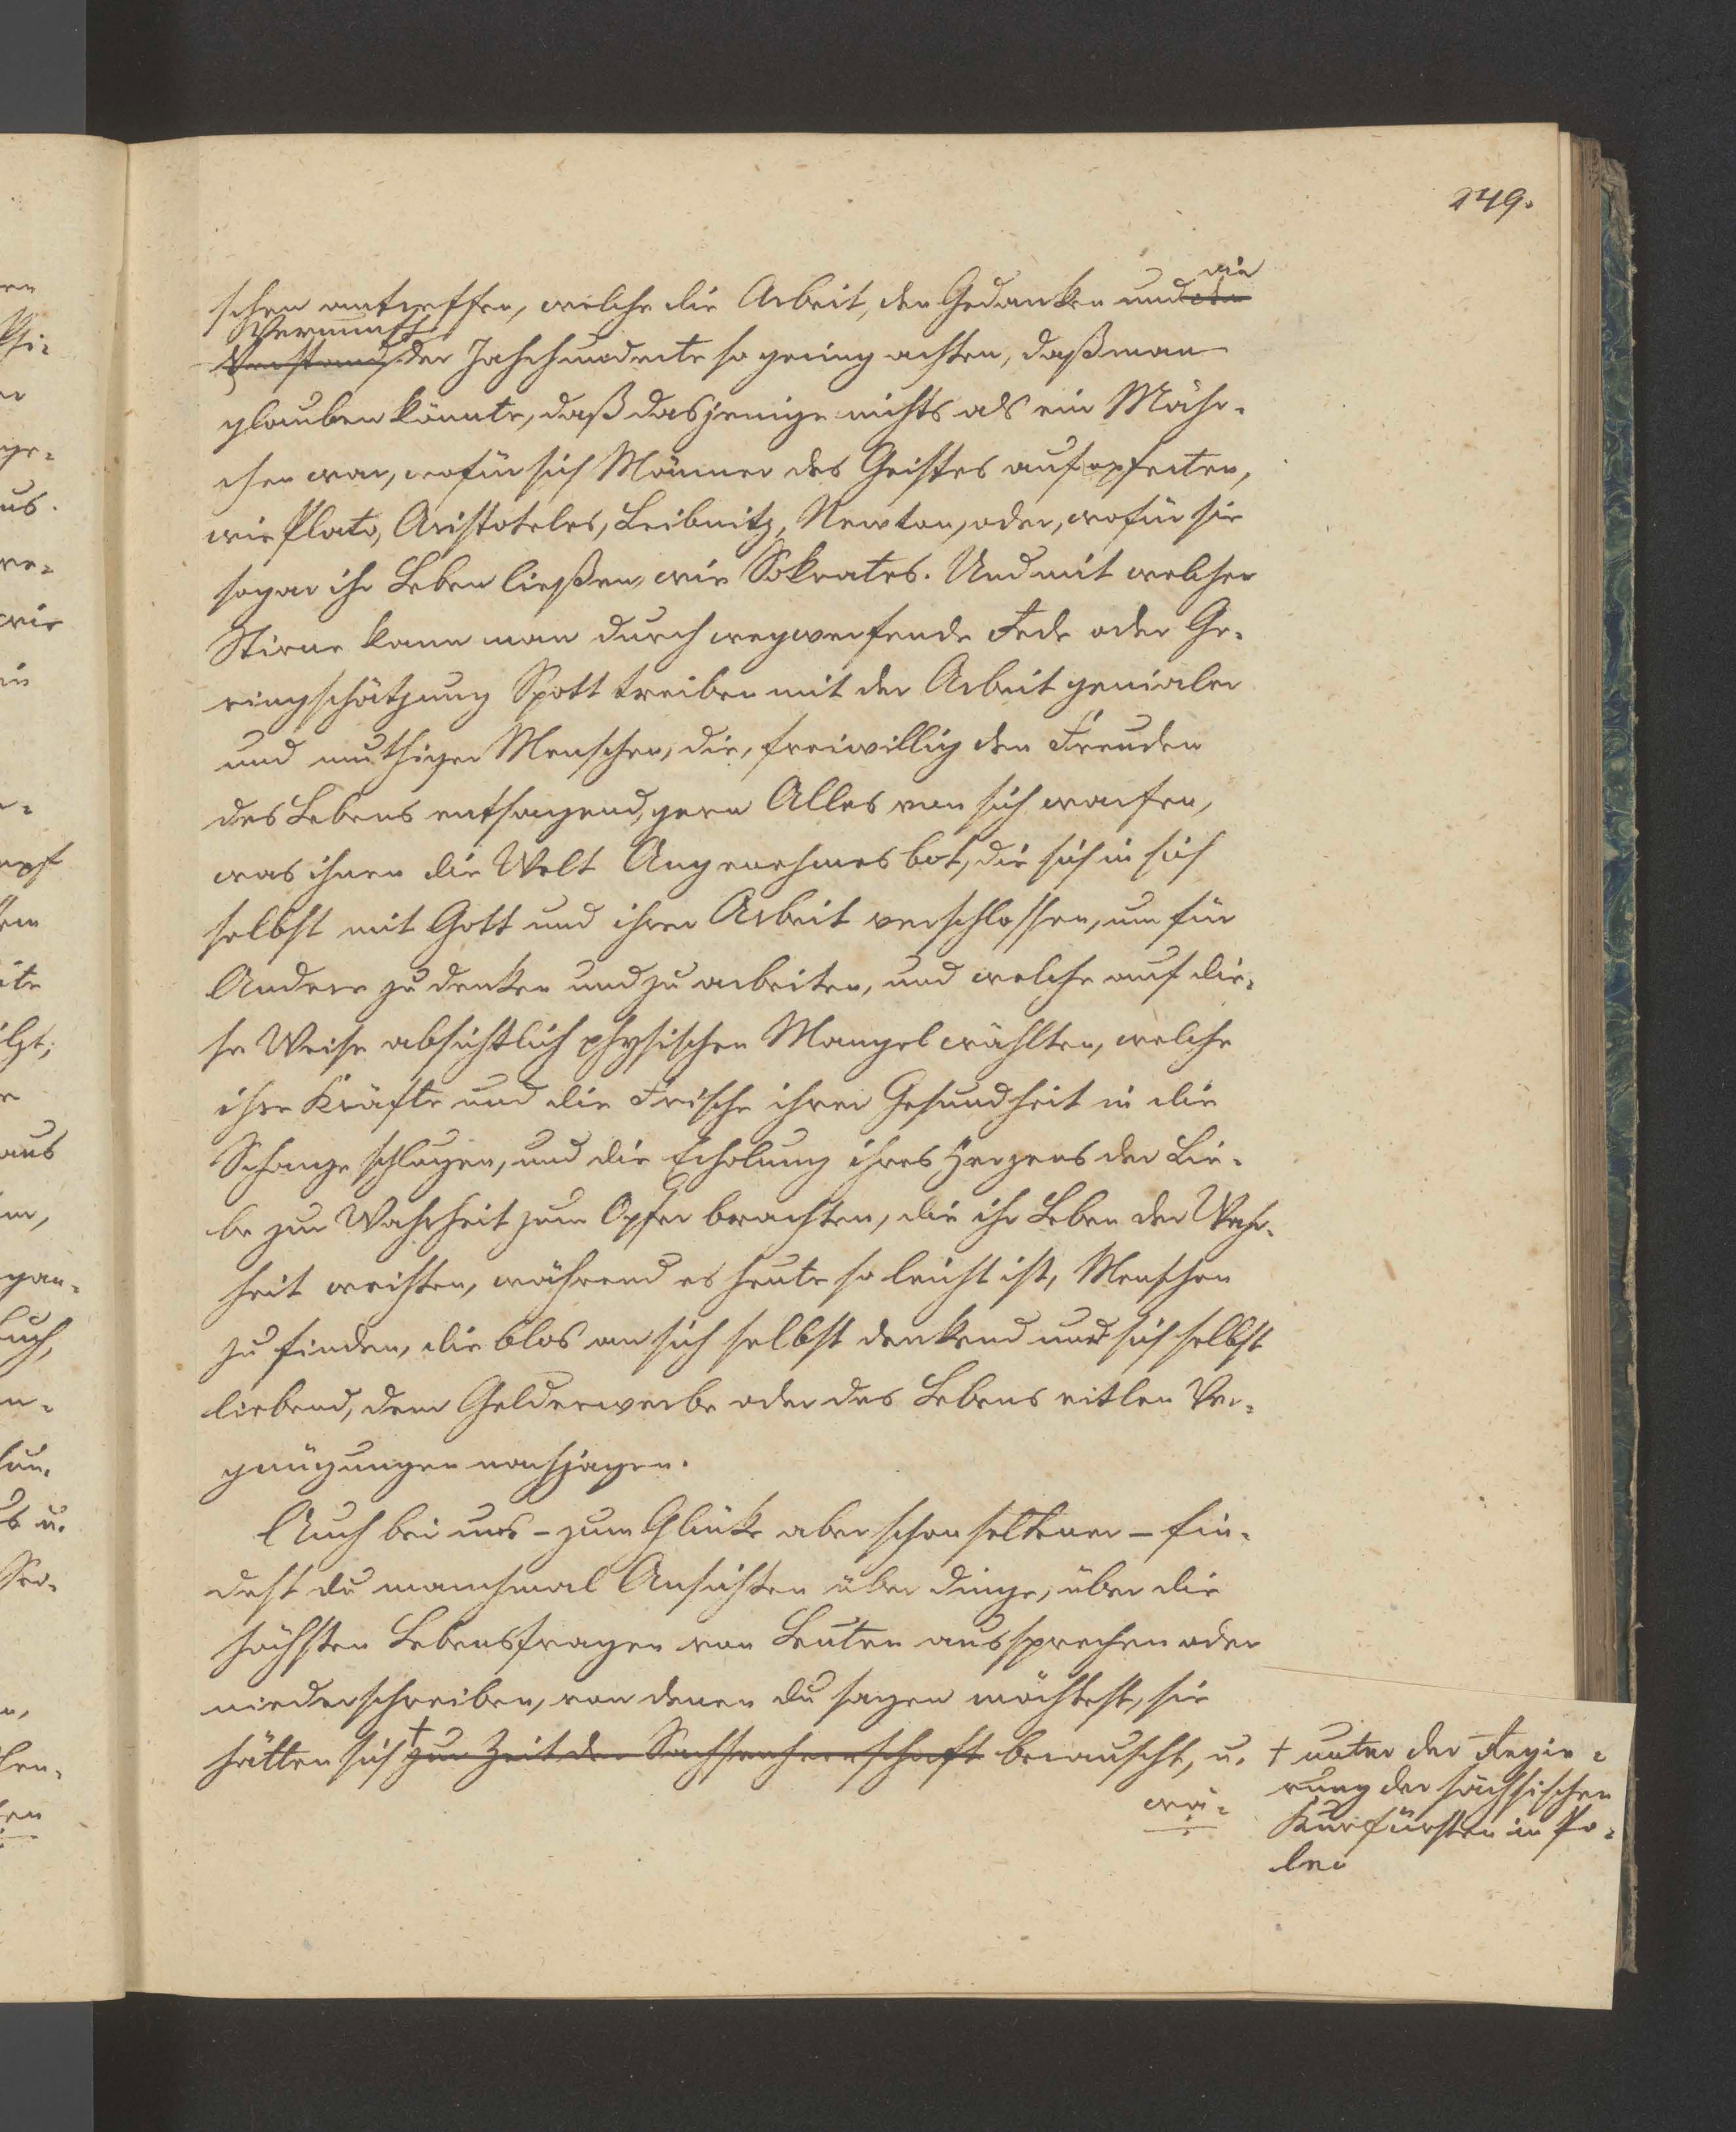 249.
schen antreffen, welche die Arbeit, den Gedanken und den die
Verstand Vernunft der Jahrhunderte so gering achten, daß man
glauben könnte, daß dasjenige nichts als ein Mähr-
chen war, wofür sich Männer des Geistes aufopferten,
wie Plato, Aristoteles, Leibnitz, Newton, oder, wofür sie
sogar ihr Leben ließen, wie Sokrates. Und mit welcher
Stirne kann man durch wegwerfende Rede oder Ge-
ringschätzung Spott treiben mit der Arbeit genialer
und muthiger Menschen, die, freiwillig den Freuden
des Lebens entsagend, gern Alles von sich warfen,
was ihnen die Welt Angenehmes bot, die sich in sich
selbst mit Gott und ihrer Arbeit verschlossen, um für
Andere zu denken und zu arbeiten, und welche auf die-
se Weise absichtlich physischen Mangel wählten, welche
ihre Kräfte und die Frische ihrer Gesundheit in die
Schanze schlugen, und die Erholung ihres Herzens der Lie-
be zur Wahrheit zum Opfer brachten, die ihr Leben der Wahr-
heit weihten, während es heute so leicht ist, Menschen
zu finden, die blos an sich selbst denkend und sich selbst
liebend, dem Gelderwerbe oder des Lebens eitlen Ver-
gnügungen nachjagen.
Auch bei uns - zum Glücke aber schon seltener - fin-
dest du manchmal Ansichten über Dinge, über die
höchsten Lebensfragen von Leuten aussprechen oder
niederschreiben, von denen du sagen möchtest, sie
hätten sich † zur Zeit der Sachsenherrschaft berauscht, u.
wä-
† unter der Regie-
rung der sächsischen
Kurfürsten in Po-
len